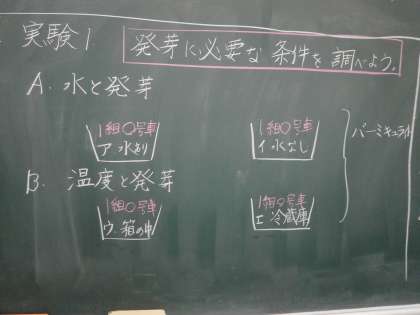 実験1 発芽に必要な条件を調べよう。
A. 水と発芽
1組〇号車
ア 水あり
1組〇号車
イ 水なし
バーミキュライト
B. 温度と発芽
1組〇号車
ウ. 箱の中
1組〇号車
エ 冷蔵庫